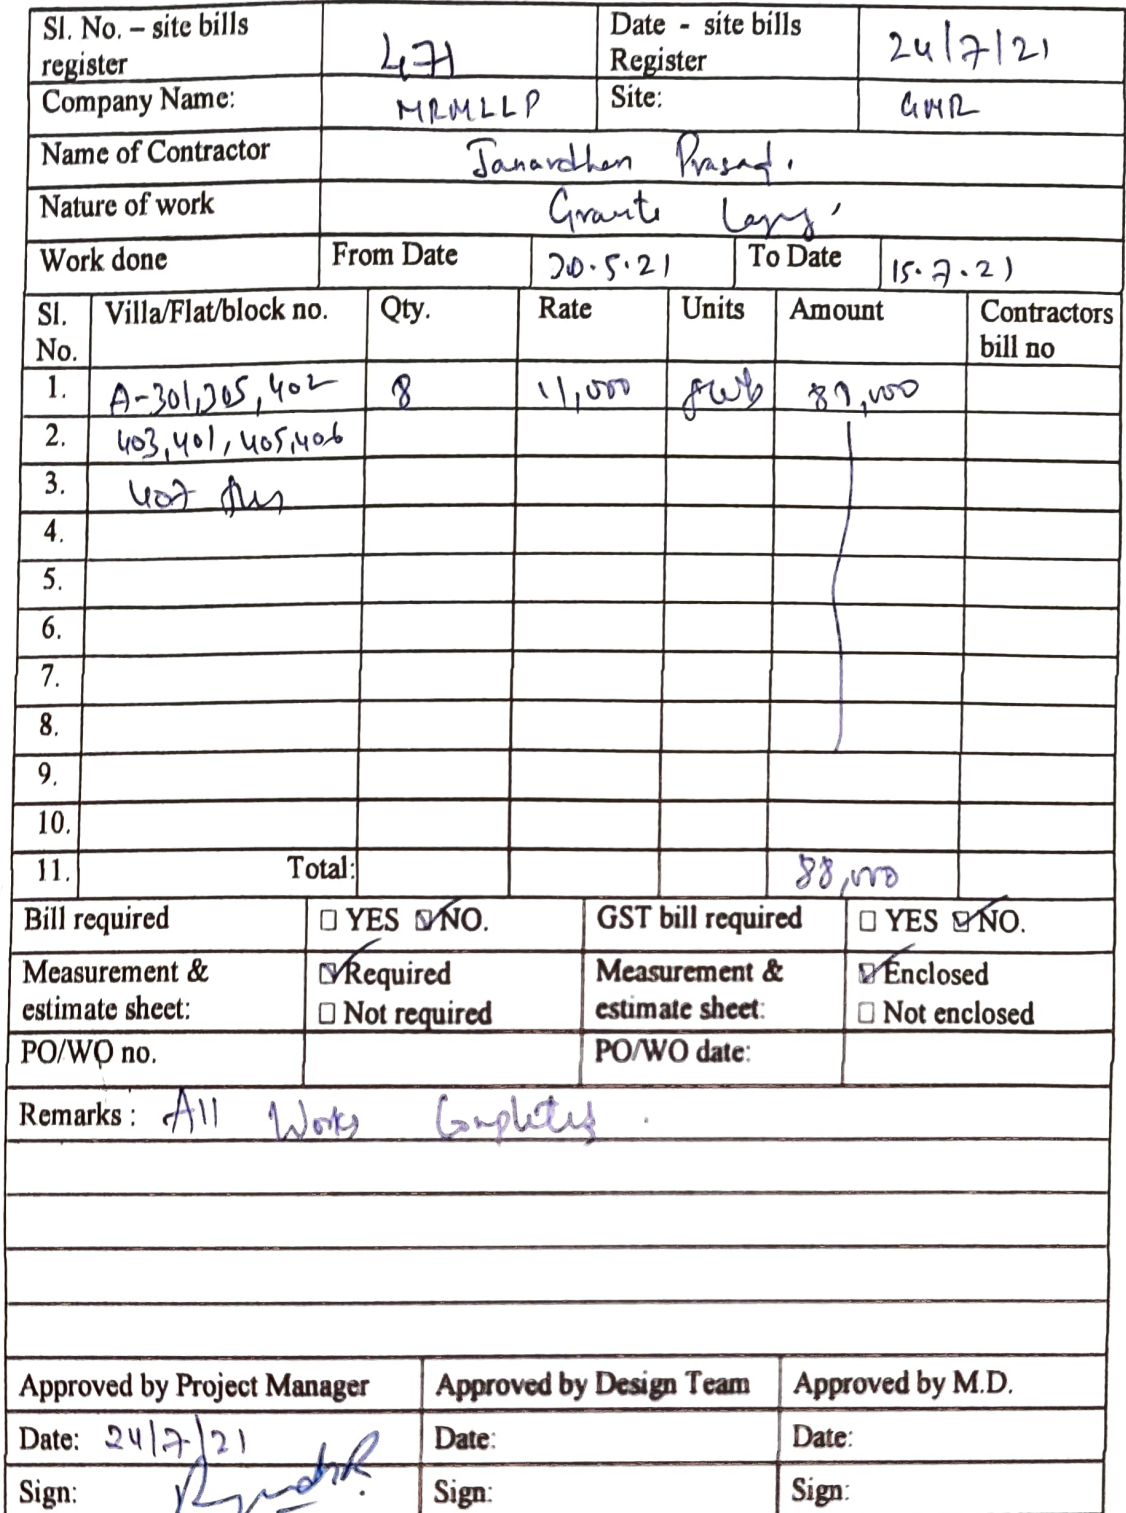 Sl. No. – site bills register 471 Date - site bills Register 24/7/21
Company Name: MRMLLP Site: GMR
Name of Contractor Janardhan Prasad.
Nature of work Granite
Work done From Date 20.5.21 To Date 15.7.21
Sl. No. Villa/Flat/block no. Qty. Rate Units Amount Contractors bill no
1. A-301,305,402 8 11,000 88,000
2. 403,401,405,406
3. 407
4.
5.
6.
7.
8.
9.
10.
11. Total: 88,000
Bill required ☐ YES ☑ NO. GST bill required ☐ YES ☑ NO.
Measurement & estimate sheet: ☑ Required ☐ Not required Measurement & estimate sheet: ☑ Enclosed ☐ Not enclosed
PO/WO no. PO/WO date:
Remarks : All Works Completed.
Approved by Project Manager Approved by Design Team Approved by M.D.
Date: 24/7/21 Date: Date:
Sign: Sign: Sign: